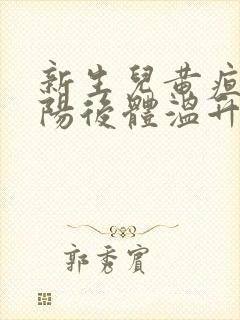 新生兒黃疸
陽後體溫升
郭秀賓